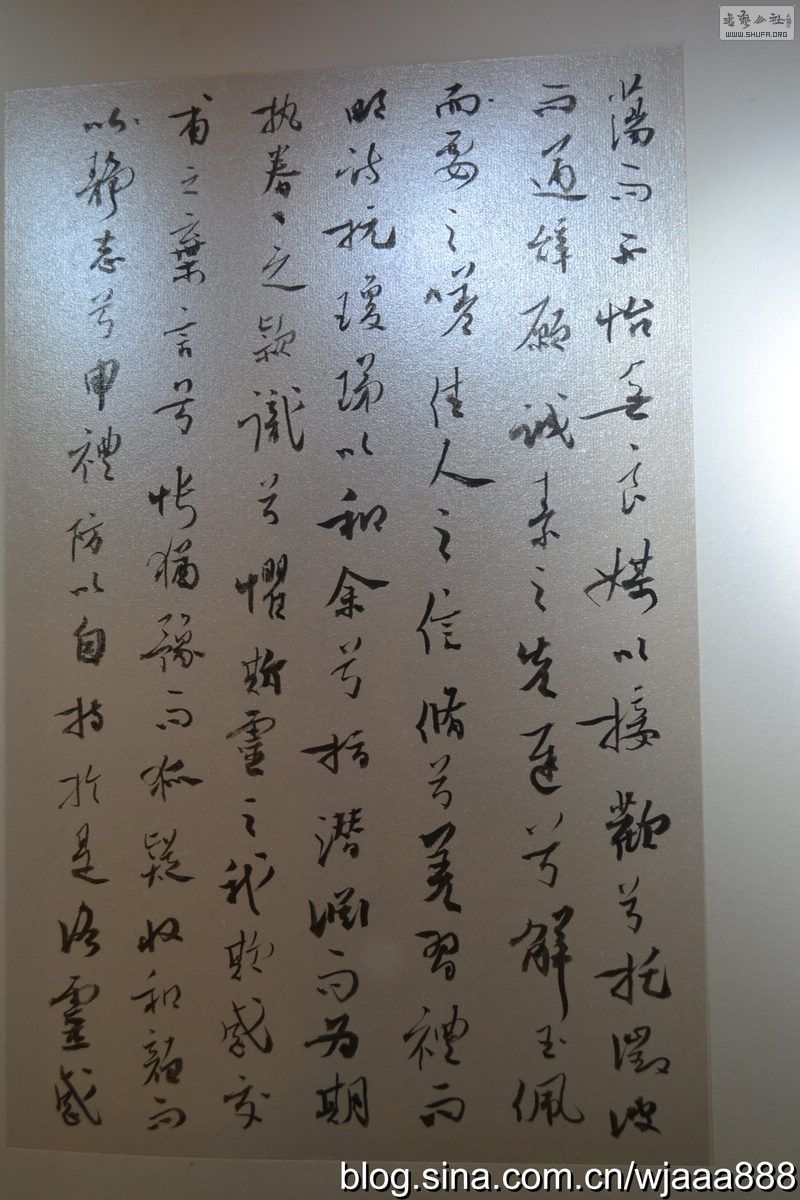 蕩而不怡無良媒以接歡兮托微波
而通辭願誠素之先達兮解玉佩
而要之嗟佳人之信脩兮羌習禮而
明詩抗瓊珶以和余兮指潛淵而為期
執眷々之款識兮懼斯靈之我欺感交
甫之棄言兮悵猶豫而狐疑收和顏而
以靜志兮申禮防以自持於是洛靈感
书艺公社
WWW.SHUFA.ORG
blog.sina.com.cn/wjaaa888